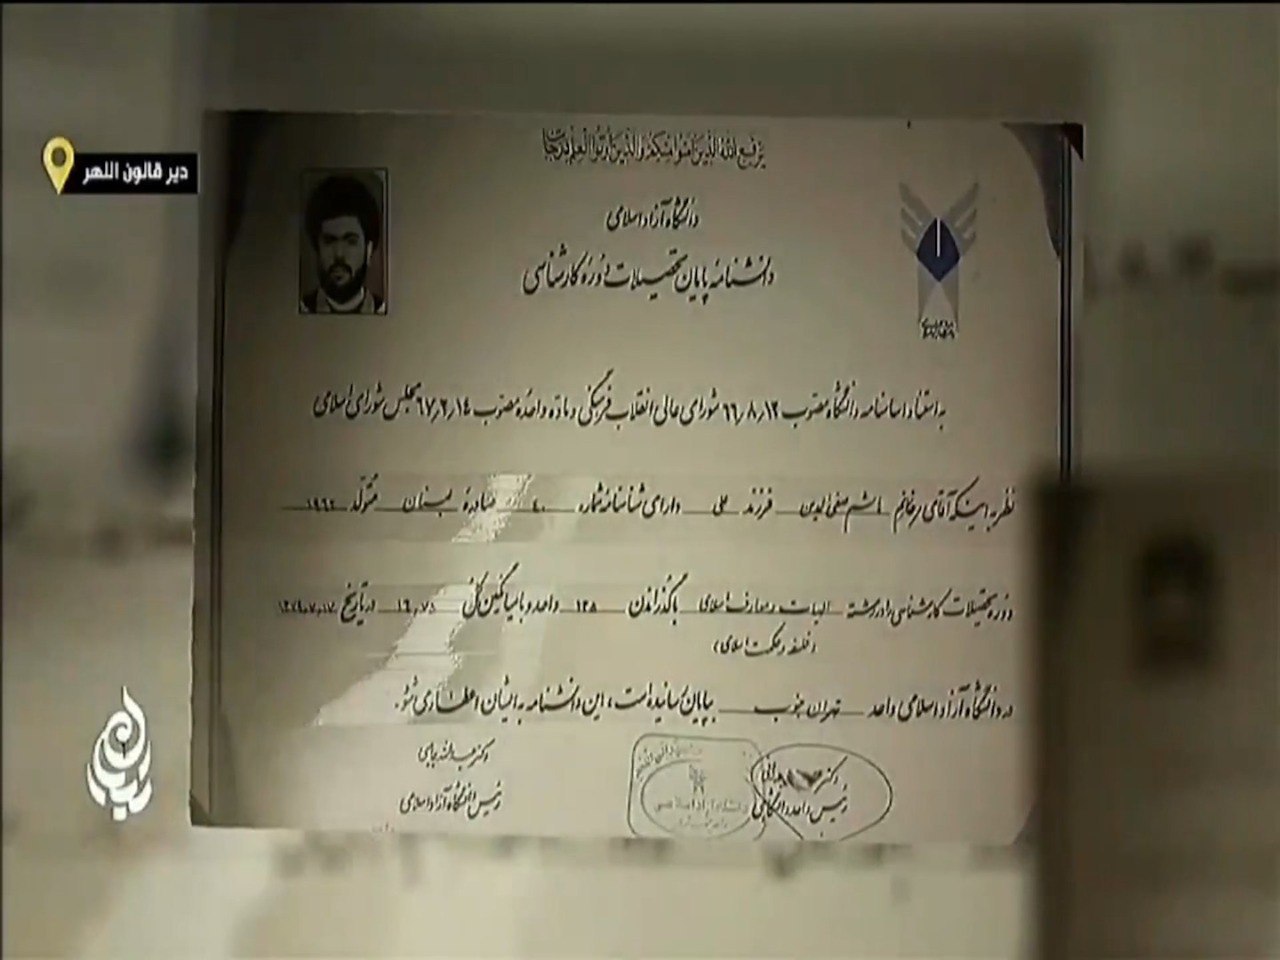 دير قانون النهر
يرفع الله الذين آمنوا منكم والذين أوتوا العلم درجات
دانشگاه آزاد اسلامی
دانشنامه پایان تحصیلات دوره کارشناسی
به استناد اساسنامه دانشگاه مصوب ۶۶٫۸٫۱۲ شورای عالی انقلاب فرهنگی و ماده واحده مصوب ۶۷٫۲٫۱۴ مجلس شورای اسلامی
نظر به اینکه آقای/خانم هاشم صفی الدین فرزند علی دارای شناسنامه شماره ۴۰ صادره لبنان متولد ۱۹۶۲
دوره تحصیلات کارشناسی را در رشته الهیات و معارف اسلامی با گذراندن ۱۳۸ واحد و با میانگین کل ۱۶٫۷۵ در تاریخ ۱۳۷۹٫۷٫۱۷
(فلسفه و حکمت اسلامی)
در دانشگاه آزاد اسلامی واحد تهران جنوب بپایان رسانیده است، این دانشنامه به ایشان اعطا می شود.
دکتر عبدالله جاسبی
رئیس دانشگاه آزاد اسلامی
دکتر
رئیس واحد دانشگاهی
دانشگاه آزاد اسلامی